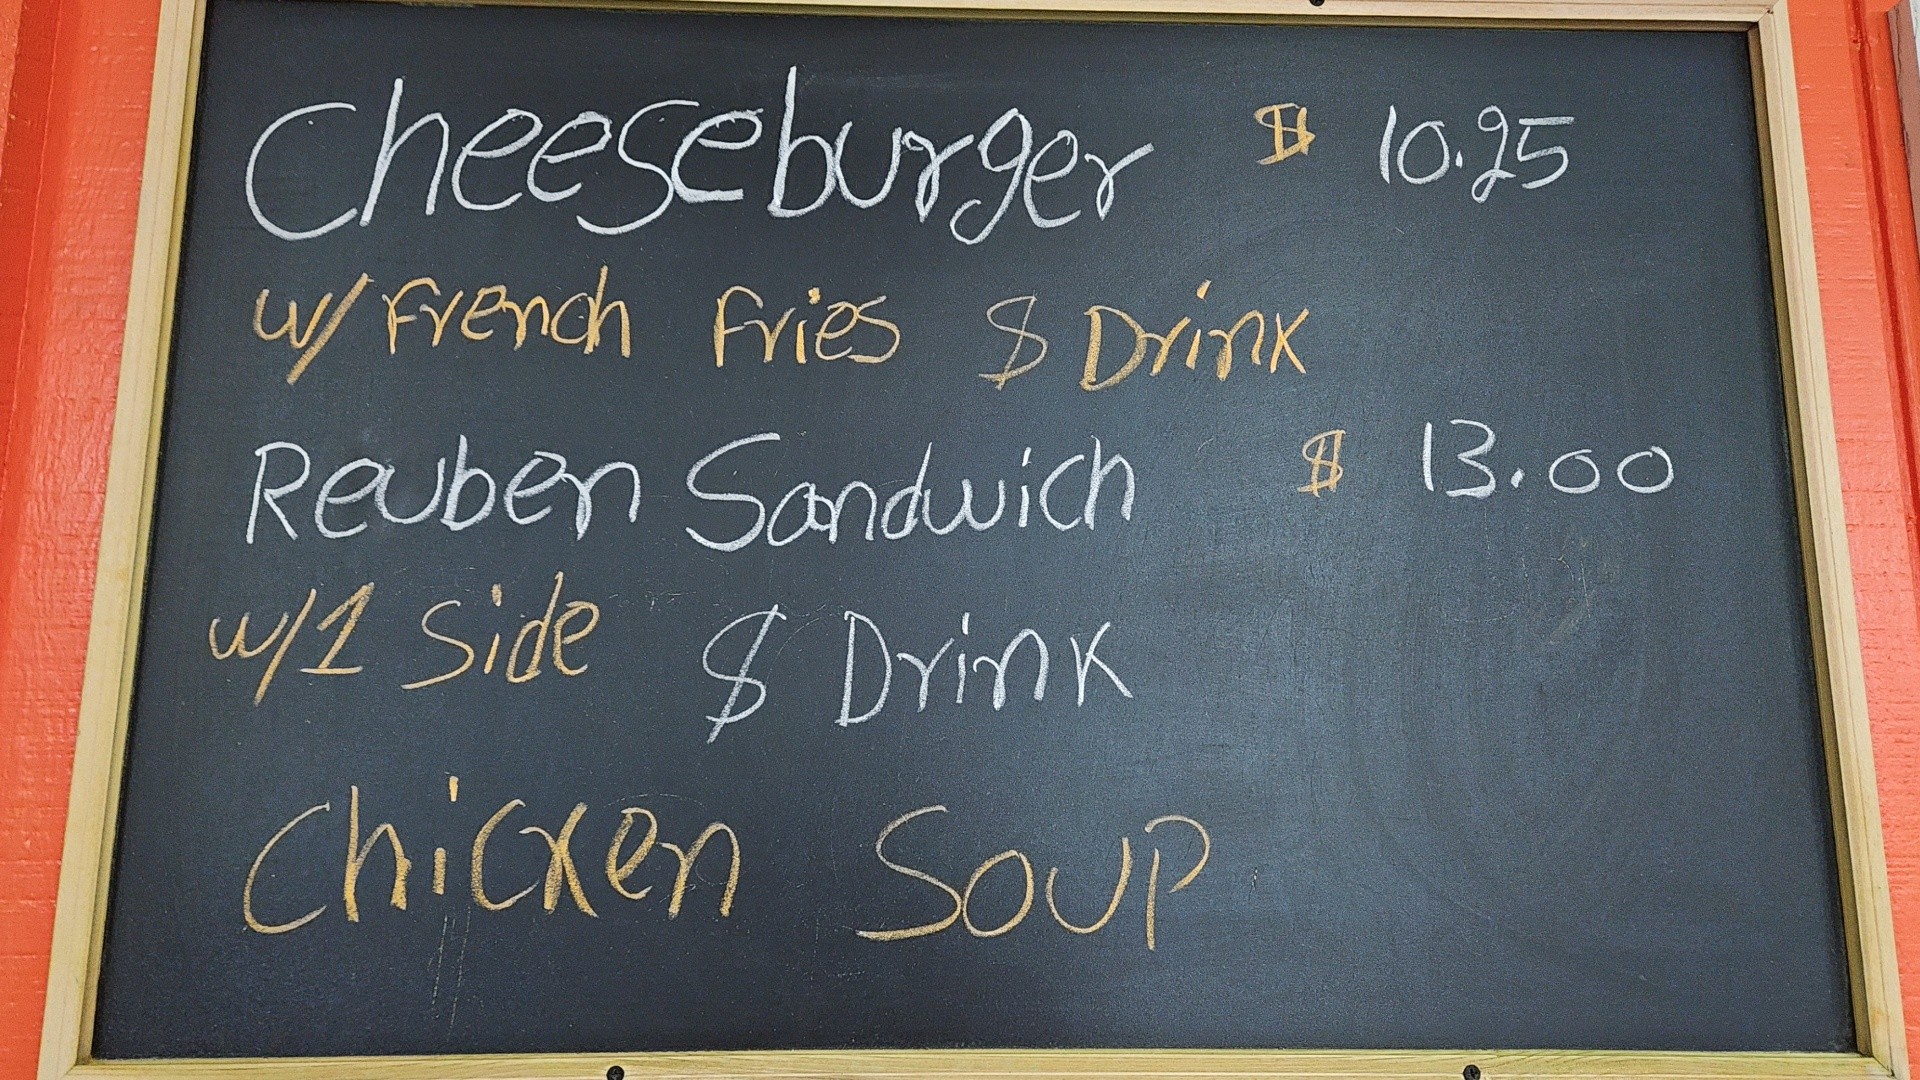 Cheeseburger $ 10.25
w/ French Fries $ Drink
Reuben Sandwich $ 13.00
w/1 Side $ Drink
Chicken Soup